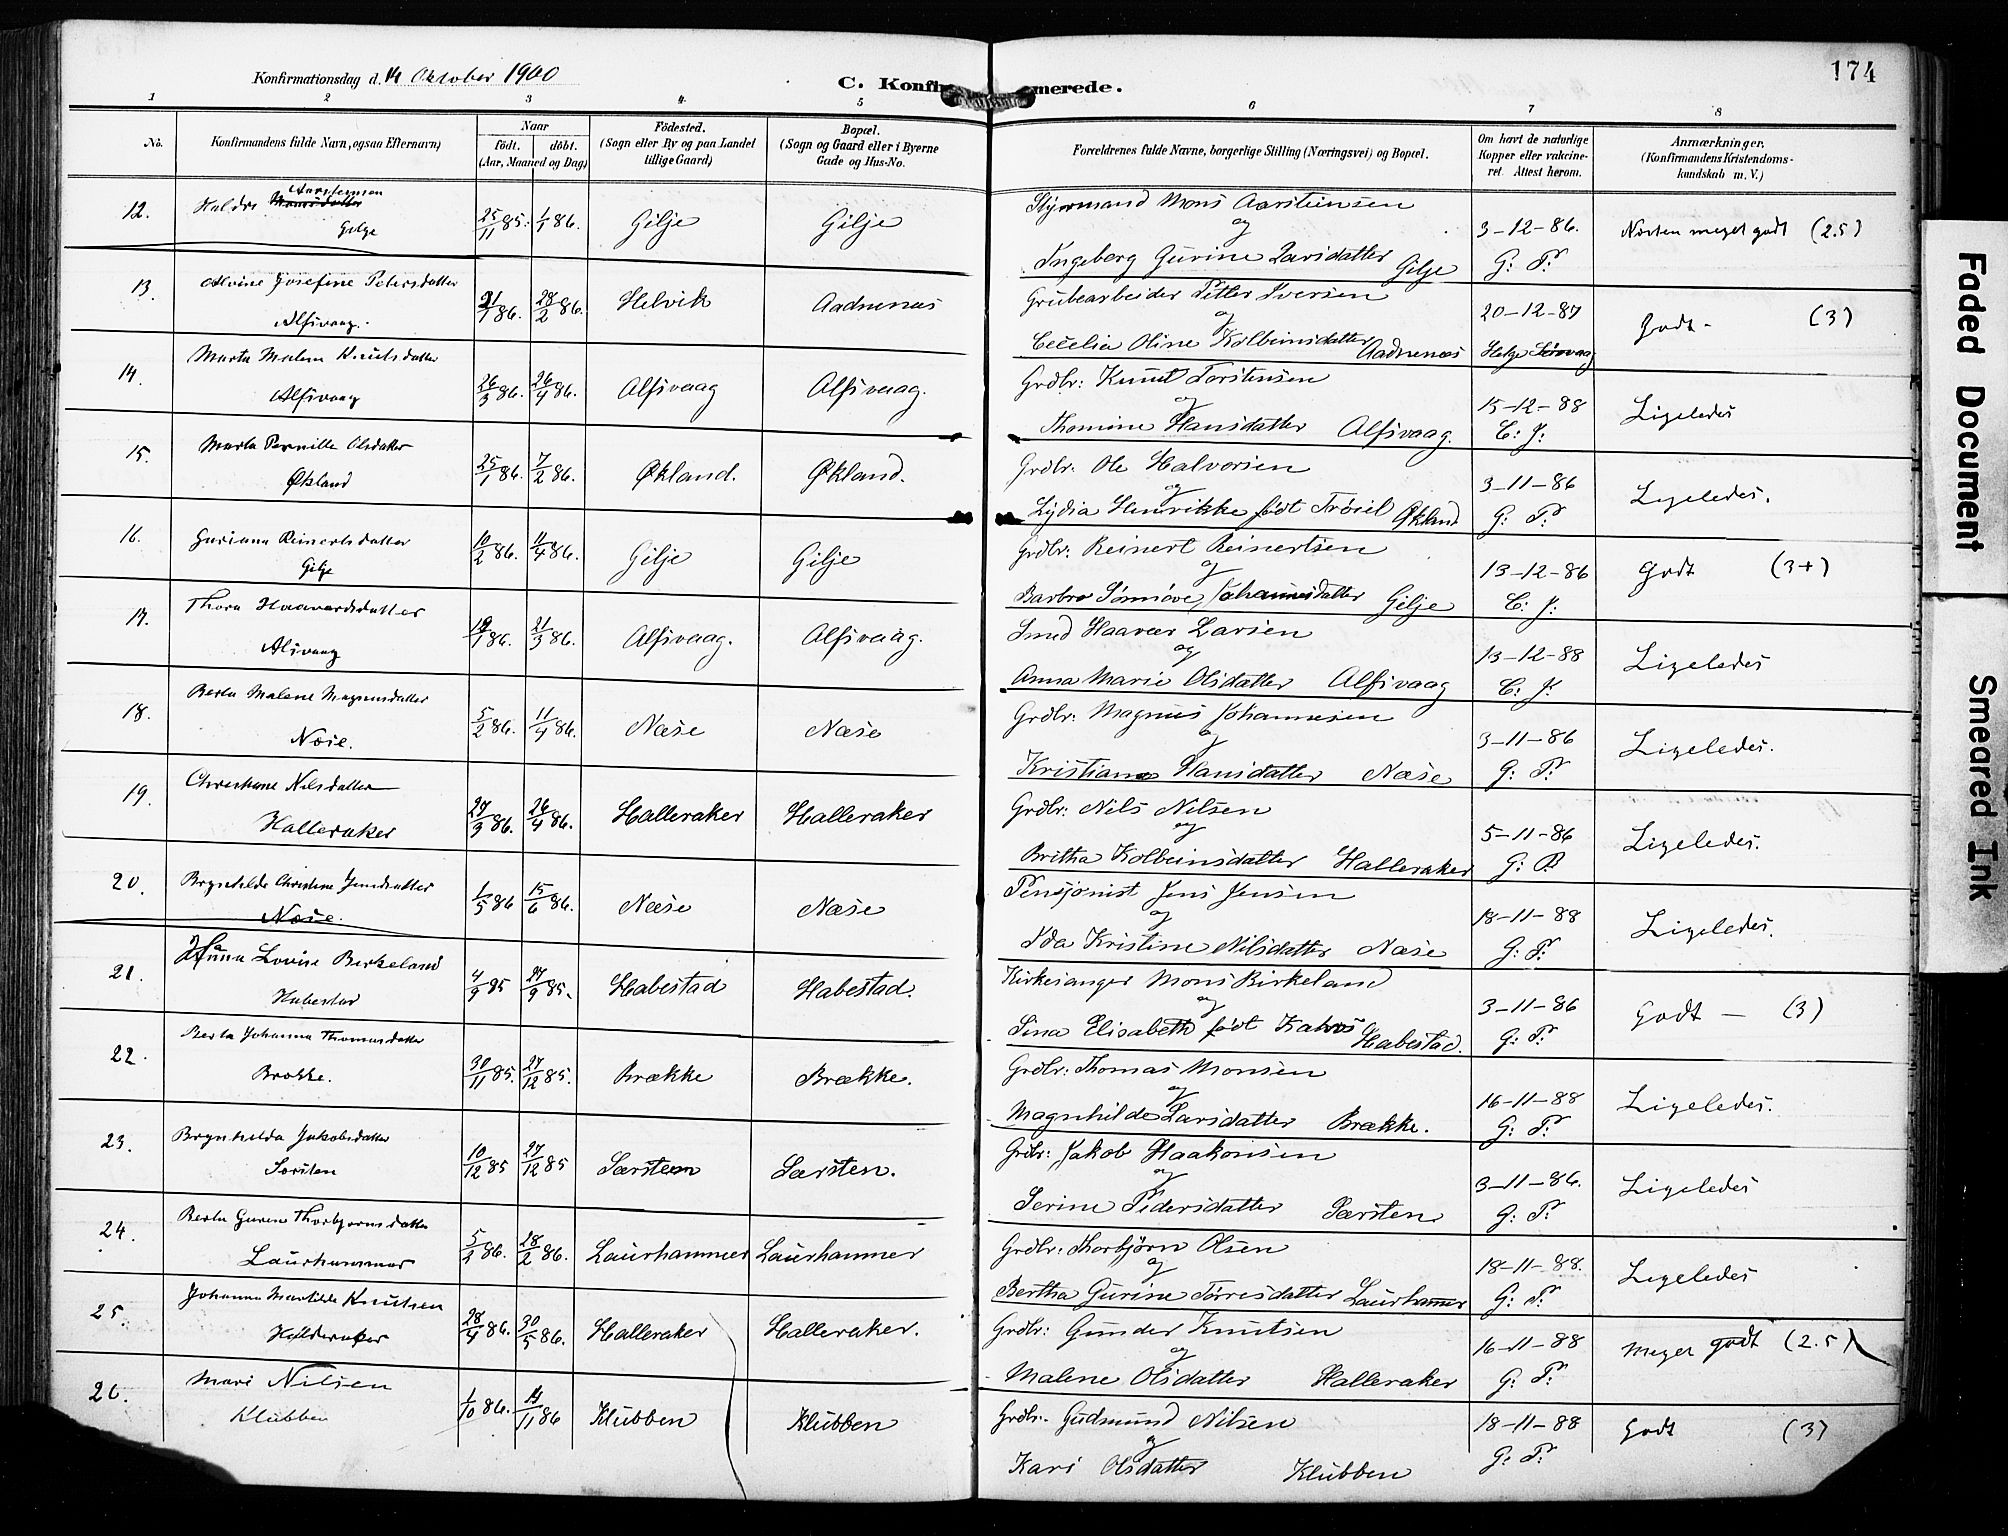 Konfirmationsdag d. 14 Oktober 1900
C. Konfir merede.
174
1 2 3 4. 5 6 7 8
No.
Konfirmandens fulde Navn, ogsaa Efternavn)
Naar
födt. döbt.
(Aar, Maaned og Dag)
Födested.
(Sogn eller By og paa Landet
tillige Gaard)
Bopæl.
(Sogn og Gaard eller i Byerne
Gade og Hus-No.
Forældrenes fulde Navne, borgerlige Stilling (Næringsvei) og Bopæl.
Om havt de naturlige
Kopper eller vakcine-
ret. Attest herom.
Anmærkninger.
(Konfirmandens Kristendoms-
kundskab m. V.)
12. Huldre Aarstensen Monsdatter
Gilje
25/11 85. 1/1 86. Gilje Gilje
Styrmand Mons Aarsteinsen
og
Ingeborg Gurine Larsdatter Gilje
3-12-86.
G: P:
Næsten meget godt (2.5)
13. Alvine Josefine Petersdatter
Alfivaag.
21/1 86. 28/2 86. Helvik Aadnenæs
Grubearbeider Petter Iversen
og
Cecelia Oline Kolbeinsdatter Aadnenæs
20-12-87
Helge Sørvaag
Godt - (3)
14. Marta Malena Knutsdatter
Alfivaag
26/3 86. 26/4 86. Alfivaag Alfivaag.
Grdbr: Knut Torstensen
og
Thomine Hansdatter Alfivaag.
15-12-88
C: J:
Ligeledes
15. Marta Pernille Olsdatter
Økland
25/1 86. 7/2 86. Økland. Økland.
Grdbr: Ole Halvorsen
og
Lydia Henrikke født Trøiel Økland
3-11-86
G: P:
Ligeledes.
16. Guriana Reinertsdatter
Gilje
10/2 86. 11/4 86. Gilje Gilje
Grdbr: Reinert Reinertsen
og
Barbro Sønnøve Johannesdatter Gilje
13-12-86
C: J:
Godt (3+)
17. Thora Haavardsdatter
Alivaag
18/1 86. 21/3 86. Alfivaag. Alfivaag.
Smed Haavar Larsen
og
Anna Marie Olsdatter Alfivaag
13-12-88
C: J:
Ligeledes
18. Berta Malene Magnusdatter
Næse.
5/2 86. 11/4 86. Næse Næse
Grdbr: Magnus Johannesen
og
Kristiane Hansdatter Næse
3-11-86
G: P:
Ligeledes.
19. Christiane Nilsdatter
Halleraker
27/3 86. 26/4 86. Halleraker Halleraker
Grdbr: Nils Nilsen
og
Britha Kolbeinsdatter Halleraker
5-11-86
G: P:
Ligeledes.
20. Brynhilde Christine Jensdatter
Næse.
1/5 86 15/6 86. Næse Næse
Pensjonist Jens Jensen
og
Ida Kristine Nilsdatter Næse
18-11-88
G: P:
Ligeledes.
21. Hanna Lovise Berkeland
Habestad
4/9 85 27/9 85. Habestad Habestad.
Kirkesanger Mons Birkeland
og
Sina Elisabeth født Kalvøs Habestad.
3-11-86
G: P:
Godt - (3)
22. Berta Johanna Thomasdatter
Brække.
30/11 85. 27/12 85. Brække Brække.
Grdbr: Thomas Monsen
og
Magnhilde Larsdatter Brække.
16-11-88
G: P:
Ligeledes.
23. Brynhilda Jakobsdatter
Sørsten
10/12 85 27/12 85 Særsten Særsten.
Grdbr: Jakob Haakonsen
og
Serine Pedersdatter Særsten
3-11-86.
G: P:
Ligeledes
24. Berta Gurine Thorbjørnsdatter
Laurhammer
5/2 86. 28/2 86. Laurhammer Laurhammer
Grdbr: Thorbjörn Olsen
og
Bertha Gurine Torresdatter Laurhammer
18-11-88.
G: P:
Ligeledes
25. Johanna Martilde Knutsen
Halleraker
28/4 86. 30/5 86. Halleraker Halleraker.
Grdbr: Gunder Knutsen
og
Malene Olsdatter Halleraker
16-11-88
G: P:
Meget godt (2.5)
26. Mari Nilsen
Klubben
1/10 86. 14/11 86 Klubben Klubben
Grdbr. Gudmund Nilsen
og
Kari Olsdatter Klubben
18-11-88
G: P:
Godt (3)
Faded Document
Smeared Ink